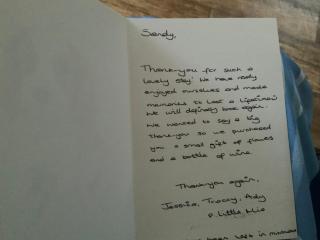 Sandy,
Thankyou for such a
lovely stay! We have really
enjoyed ourselves and made
memories to last a lifetime!
We will definately book again.
We wanted to say a big
thankyou so we purchased
you a small gift of flowers
and a bottle of wine.
Thankyou again,
Jessica, Tracey, Ady
& Little Mia
been left in